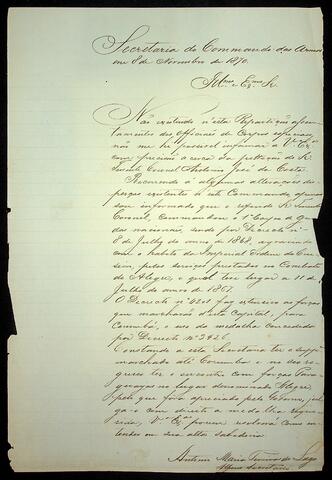 Secretaria do Commando das Armas
em 8 de Novembro de 1870.
Illmo e Exmo Sr.
Não existindo n'esta Repartição assen-
tamentos dos Officiaes de Corpos especiaes,
não me he possivel informar a Vª Exª
com precisão acerca da petição do Sr.
Tenente Coronel Antonio José da Costa.
Recorrendo á algumas alterações dis-
persas existentes n'este Commando, apenas
sou informado que o referido Sr. Tenente
Coronel, Commandou o 1º Corpo de Guar-
das nacionaes, sendo por Decreto nº
8 de Julho do anno de 1868, agraciado
com o habito da Imperial Ordem do Cru-
seiro, pelos serviços prestados no Combate
do Alegre, o qual teve lugar a 11 de
Julho do anno de 1867.
O Decreto nº 4201 faz extensivo as forças
que marcharão d'esta Capital, para
Corumbá, o uso da medalha concedida
por Decreto nº 3926
constando a esta Secretaria ter o suppe
marchado até Corumbá e no seu re-
gresso ter o encontro com forças Para-
guayas no lugar denominado Alegre,
feito que foi apreciado pelo Governo, jul-
go-o com direito a medalha reque-
rida, Vª Exª porem resolverá como en-
tender em sua alta sabedoria
Antonio Maria
Secretario